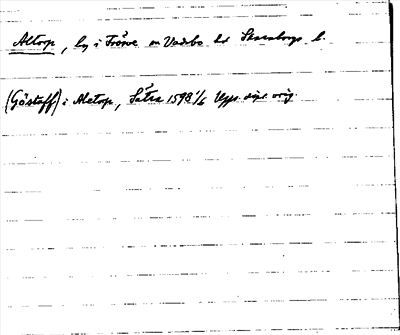 Altorp, by i Fröve sn Vadsbo hd Skaraborgs l.
(Göstaff) i Aletorp, Sätra 1598 1/6 Upps. dipl. orig.